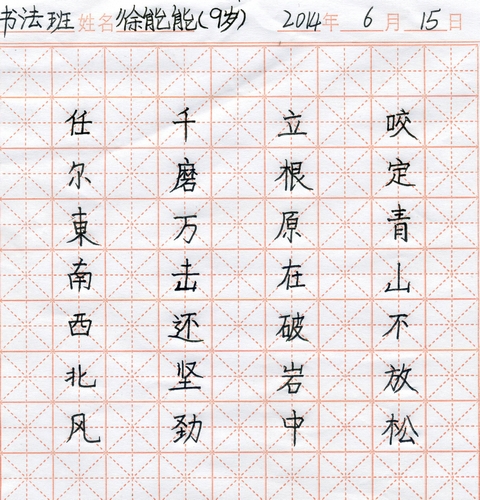 书法班 姓名 徐能能(9岁) 2014年 6月 15日
咬定青山不放松
立根原在破岩中
千磨万击还坚劲
任尔東南西北风